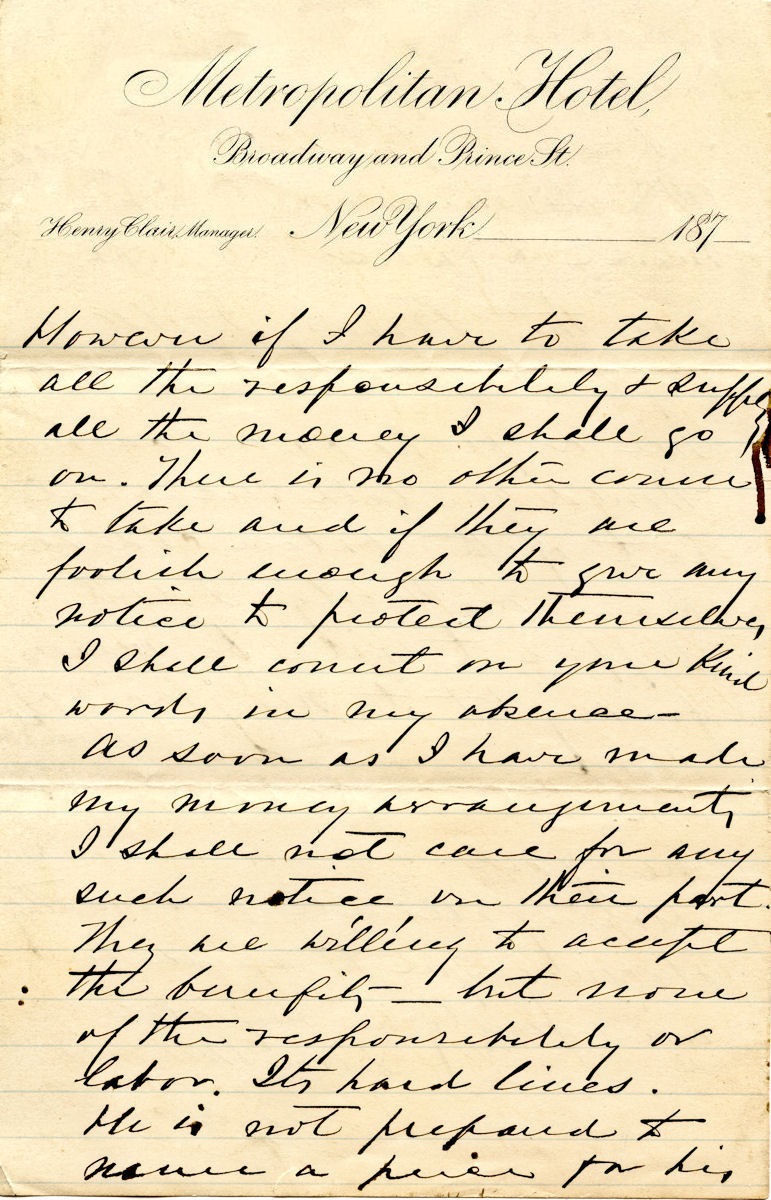 Metropolitan Hotel,
Broadway and Prince St.
Henry Clair, Manager. New York 187
However if I have to take
all the responsibility & supply
all the money I shall go
on. There is no other course
to take and if they are
foolish enough to give any
notice to protect themselves
I shall count on your kind
words in my absence—
As soon as I have made
my money arrangements,
I shall not care for any
such notice on their part.
They are willing to accept
the benefits — but none
of the responsibility or
labor. Its hard lines.
He is not prepared to
name a price for his